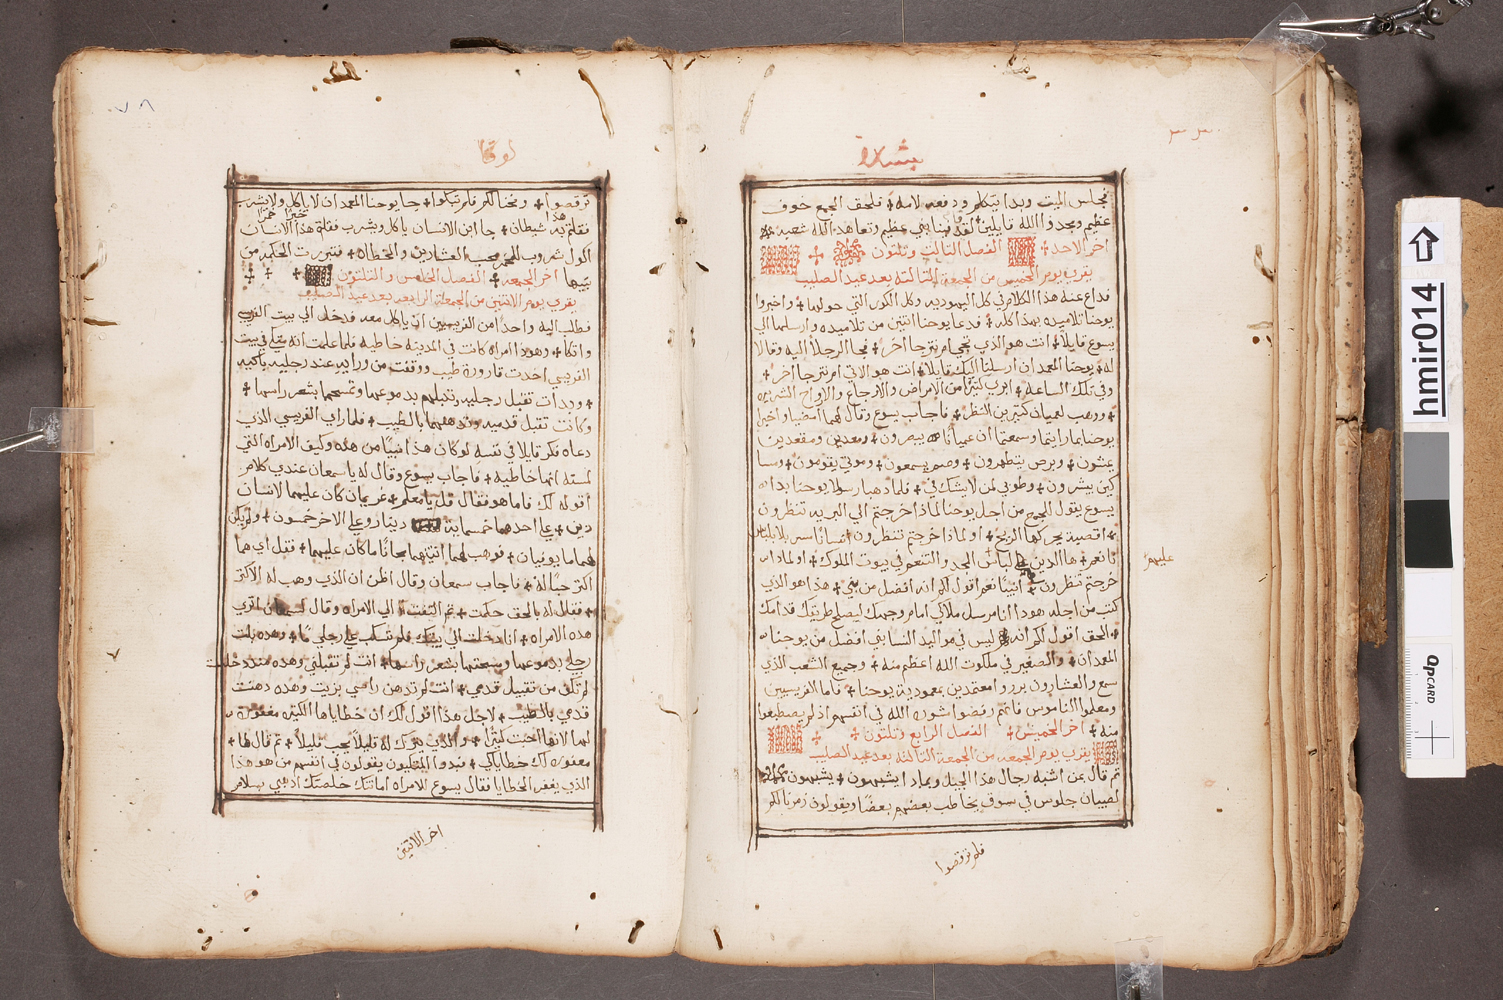 بشارة
فجلس الميت وبدا يتكلم ودفعه لامه + فلحق الجمع خوف
عظيم ومجدوا الله قايلين لقد قام فينا نبي عظيم وتعاهد الله شعبه
اخر الاحد + الفصل الثالث وثلثون
يقرى يوم الخميس من الجمعة الثالثه بعد عيد الصليب
فداع عنه هذا الكلام في كل اليهوديه وكل الكور التي حولها + واخبروا
يوحنا تلاميذه بهذا كله + فدعا يوحنا اثنين من تلاميذه وارسلهما الي
يسوع قايلا + انت هو الذي يجي ام نترجا اخر + فجا الرجلا اليه وقالا
له + يوحنا المعمدان ارسلنا اليك قايلا + انت هو الاتي ام نترجا اخر +
وفي تلك الساعه + ابرى كثيرًا من الامراض والاوجاع والارواح الشريره
+ ووهب لعميان كثيرين النظر + فاجاب يسوع وقال لهما امضيا واخبرا
يوحنا بما رايتما وسمعتما ان عميانًا يبصرون + ومقعدين
يمشون + وبرص يتطهرون + وصم يسمعون + وموتي يقومون + ومسا
كين يبشرون + وطوبي لمن لا يشك في + فلما ذهبا رسولا يوحنا بدا
يسوع يقول للجمع من اجل يوحنا لماذا خرجتم الي البريه تنظرون
+ اقصبة يحركها الريح + او لماذا خرجتم تنظرون انسانًا بلباس
ناعم + ها الذين عليهم لباس المجد والتنعم في بيوت الملوك + او لماذا
خرجتم تنظرون + انبيًا نعم اقول لكم انه افضل من نبي + هذا هو الذي
كتب من اجله هوذا انا مرسل ملاكي امام وجهك ليصلح طريقك قدامك
+ الحق اقول لكم انه ليس في مواليد النسا نبي افضل من يوحنا
المعمدان + والصغير في ملكوت الله اعظم منه + وجميع الشعب الذي
سمع والعشارون برروا معتمدين بمعمودية يوحنا + فاما الفريسيين
ومعلموا الناموس فانهم رفضوا مشورة الله في انفسهم اذ لم يصطبغوا
منه + اخر الخميس + الفصل الرابع وثلثون +
يقرى يوم الجمعه من الجمعة الثالثه بعد عيد الصليب
ثم قال بمن اشبه رجال هذا الجيل وبماذا يشبهون + يشبهون
لصبيان جلوس في سوق يخاطب بعضهم بعضًا ويقولون زمرنا لكم
عليهم
فلم ترقصوا
لوقا
٧٨
ترقصوا + ونحنا لكم فلم تبكوا + جا يوحنا المعمدان لا ياكل ولا يشرب
خبزًا خمرًا
هذا
فقلتم به شيطان + جا ابن الانسان ياكل ويشرب فقلتم هذا الانسان
اكول شروب الخمر محب العشارين والخطاه + فتبررت الحكمه من
بنيها اخر الجمعه + الفصل الخامس والثلثون
يقرى يوم الاثنين من الجمعة الرابعه بعد عيد الصليب
فطلب اليه واحدًا من الفريسيين ان ياكل معه فدخل الي بيت الفريسي
واتكا + وهوذا امراه كانت في المدينه خاطيه فلما علمت انه متكي في بيت
الفريسي اخدت قارورة طيب ووقفت من ورايه عند رجليه باكيه
+ وبدات تقبل رجليه وتبلهم بدموعها وتمسحهما بشعر راسها +
وكانت تقبل قدميه وتدهنهما بالطيب + فلما راي الفريسي الذي
دعاه فكر قايلا في نفسه لو كان هذا نبيًا من هذه وكيف الامراه التي
لمسته انها خاطيه + فاجاب يسوع وقال له يا سمعان عندي كلام
اقوله لك فاما هو فقال قل يا معلم + غريمان كان عليهما لانسان
دين + علي احدهما خمسماية دينار وعلي الاخر خمسون + ولم يكن
لهما ما يوفيان + فوهب لهما اثنيهما مجانًا ما كان عليهما + فقل اي هما
اكثر حبًا له + فاجاب سمعان وقال اظن ان الذي وهب له الاكثر
+ فقال له بالحق حكمت + ثم التفت الي الامراه وقال لسمعان اترى
هذه الامراه + انا دخلت الي بيتك فلم تسكب علي رجلي ما + وهذه بلت
رجلي بدموعها ومسحتهما بشعر راسها + انت لم تقبلني وهذه منذ دخلت
لم تكف من تقبيل قدمي + انت لم تدهن راسي بزيت وهذه دهنت
قدمي بالطيب + لاجل هذا اقول لك ان خطاياها الكثيره مغفوره
لها لانها احبت كثيرًا + والذي يترك له قليلاً يحب قليلاً + ثم قال لها +
مغفوره لك خطاياكي + فبدوا المتكيون يقولون في انفسهم من هو هذا
الذي يغفر الخطايا فقال يسوع للامراه امانتك خلصتك اذهبي بسلام
اخر الاثنين
hmir014
QP CARD